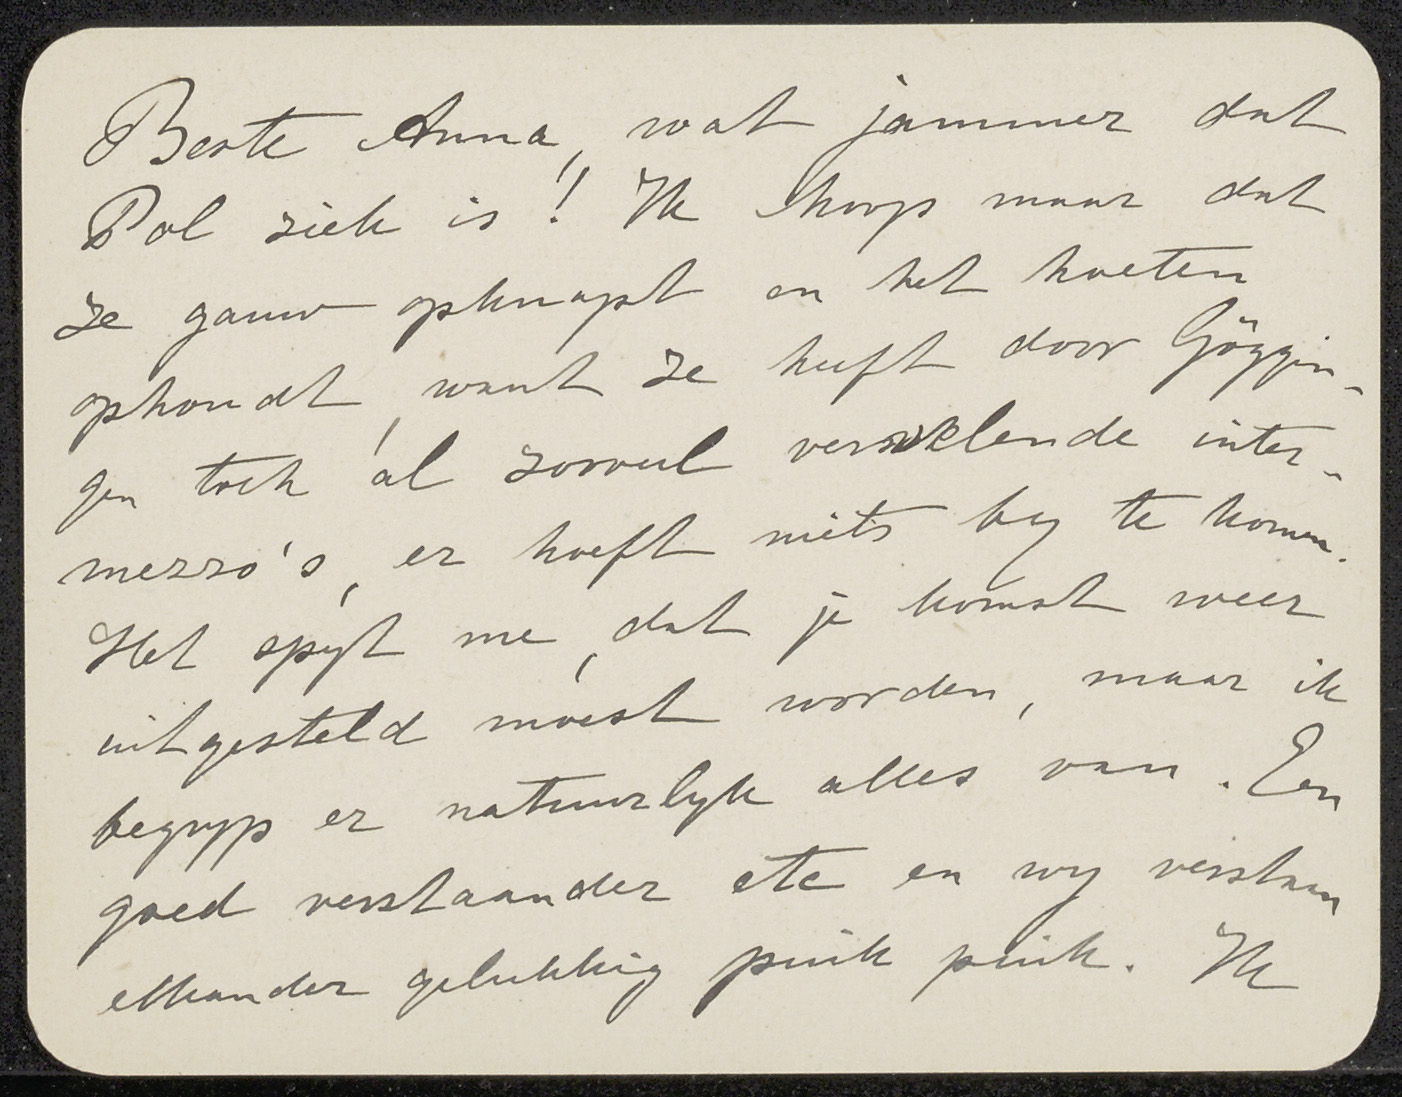 Beste Anna, wat jammer dat
Pol ziek is! Ik hoop maar dat
ze gauw opknapt en het hoesten
ophoudt, want ze heeft door Göggin-
gen toch al zooveel vervelende inter-
mezzo's, er hoeft niets by te komen.
Het spyt me, dat je komst weer
uitgesteld moest worden, maar ik
begryp er natuurlyk alles van. Een
goed verstaander etc en wy verstaan
elkander gelukkig puik puik. Ik